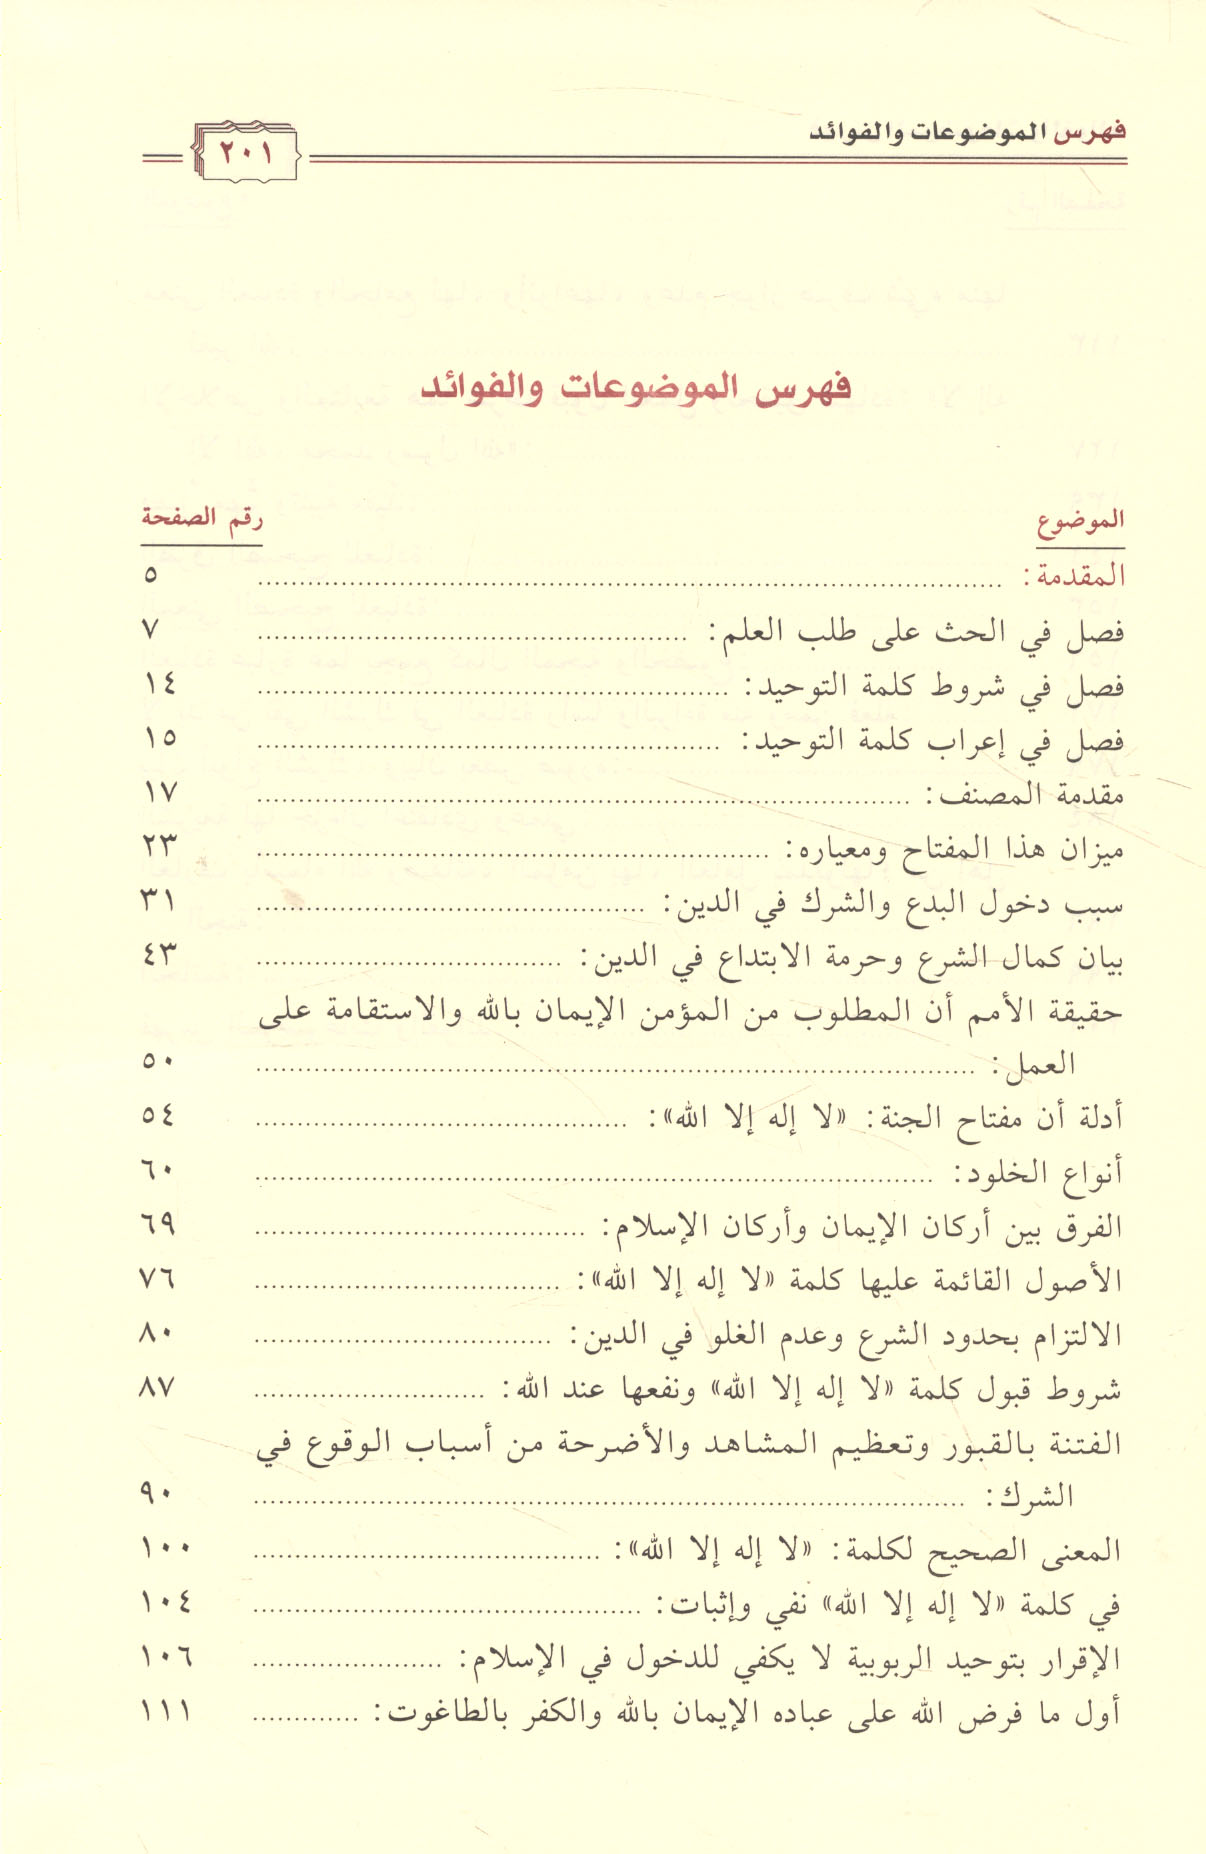 فهرس الموضوعات والفوائد
٢٠١
فهرس الموضوعات والفوائد
الموضوع رقم الصفحة
المقدمة: ٥
فصل في الحث على طلب العلم: ٧
فصل في شروط كلمة التوحيد: ١٤
فصل في إعراب كلمة التوحيد: ١٥
مقدمة المصنف: ١٧
ميزان هذا المفتاح ومعياره: ٢٣
سبب دخول البدع والشرك في الدين: ٣١
بيان كمال الشرع وحرمة الابتداع في الدين: ٤٣
حقيقة الأمم أن المطلوب من المؤمن الإيمان بالله والاستقامة على
العمل: ٥٠
أدلة أن مفتاح الجنة: «لا إله إلا الله»: ٥٤
أنواع الخلود: ٦٠
الفرق بين أركان الإيمان وأركان الإسلام: ٦٩
الأصول القائمة عليها كلمة «لا إله إلا الله»: ٧٦
الالتزام بحدود الشرع وعدم الغلو في الدين: ٨٠
شروط قبول كلمة «لا إله إلا الله» ونفعها عند الله: ٨٧
الفتنة بالقبور وتعظيم المشاهد والأضرحة من أسباب الوقوع في
الشرك: ٩٠
المعنى الصحيح لكلمة: «لا إله إلا الله»: ١٠٠
في كلمة «لا إله إلا الله» نفي وإثبات: ١٠٤
الإقرار بتوحيد الربوبية لا يكفي للدخول في الإسلام: ١٠٦
أول ما فرض الله على عباده الإيمان بالله والكفر بالطاغوت: ١١١